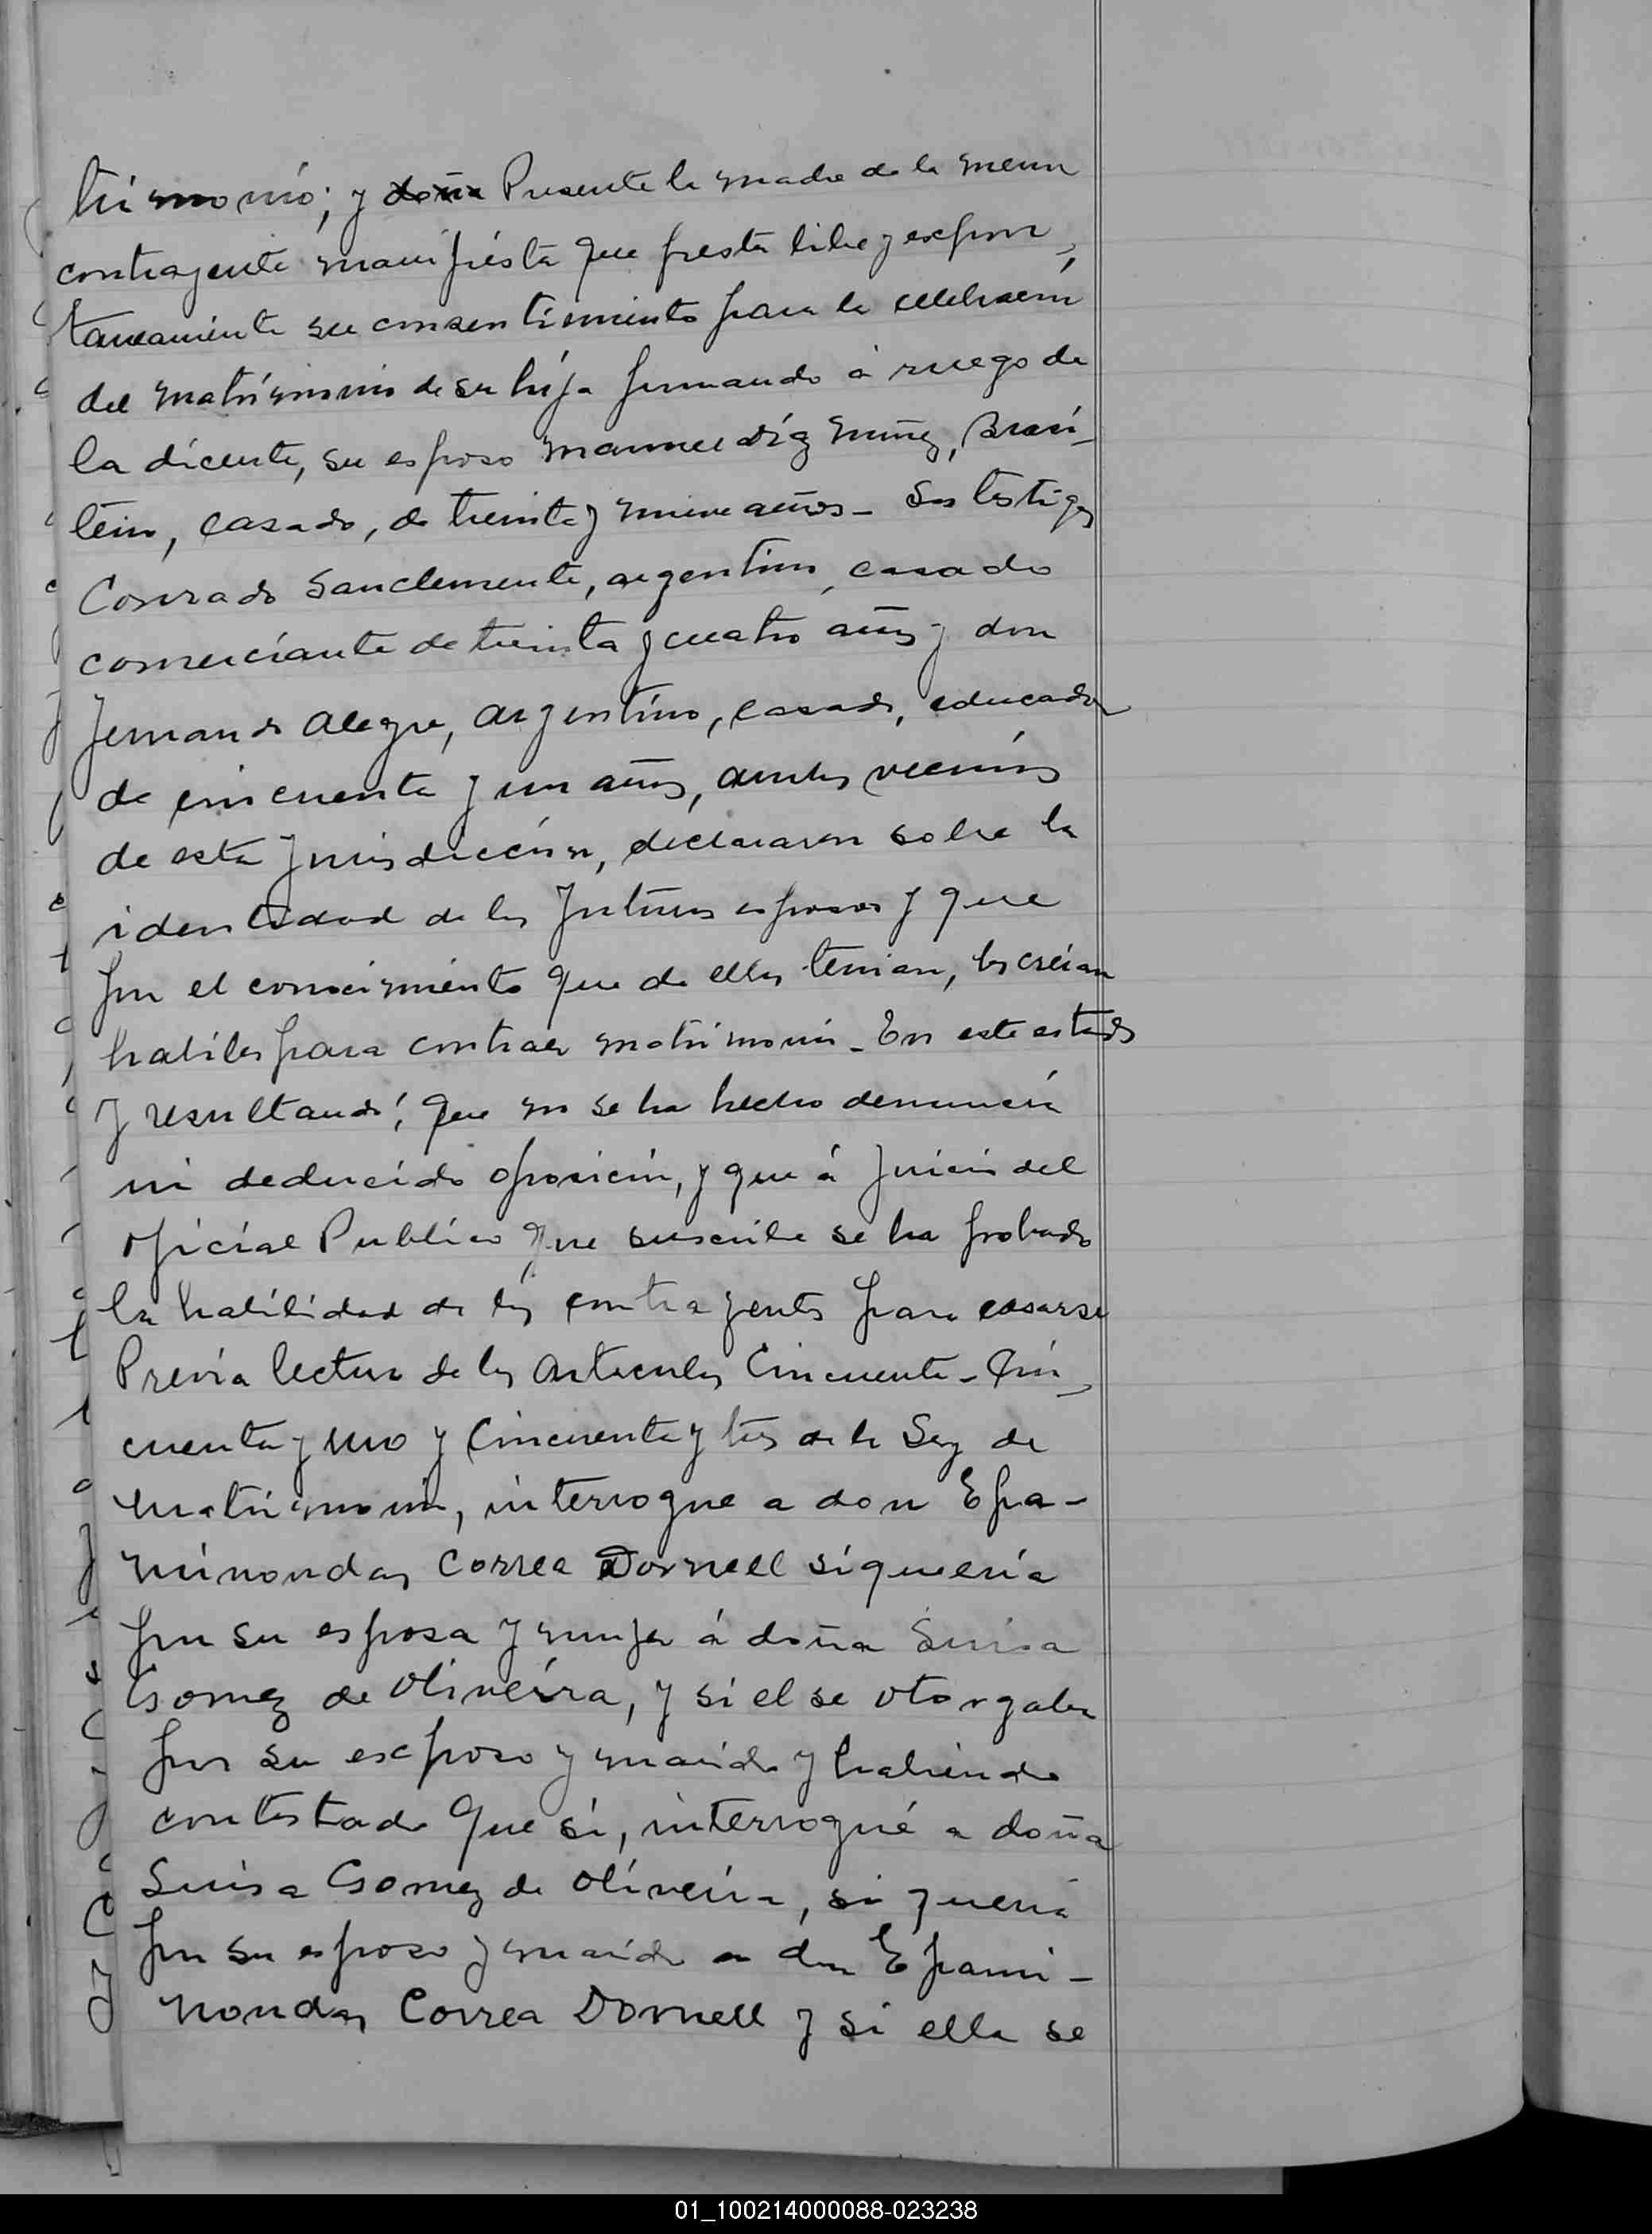 trimonio; y doña Presente la madre de la menor
contrayente manifiesta que presta libre y expon-
taneamente su consentimiento para la celebracion
del matrimonio de su hija firmando á ruego de
la dicente, su esposo Manuel Diaz Nuñez, Brasi-
lero, casado, de treinta y nueve años_ Los testigos
Conrado Sanclemente, argentino, casado
comerciante de treinta y cuatro años y don
Fernando Alegre, argentino, casado, educador
de cincuenta y un años, ambos vecinos
de esta Jurisdiccion, declararon sobre la
identidad de los futuros esposos y que
por el conocimiento que de ellos tenian, los creian
habiles para contraer matrimonio_ En este estado
y resultando: que no se ha hecho denuncia
ni deducido oposicion, y que á juicio del
oficial Publico que suscribe se ha probado
la habilidad de los contrayentes para casarse
Previa lectura de los articulos Cincuenta_ Cin-
cuenta y uno y Cincuenta y tres de la Ley de
matrimonio, interrogue a don Epa-
minondas Correa Dornell si queria
por su esposa y mujer á doña Luisa
Gomez de Oliveira, y si el se otorgaba
por su exposo y marido y habiendo
contestado que si, interrogué a doña
Luisa Gomez de Oliveira, si queria
por su esposo y marido a don Epami-
nondas Correa Dornell y si ella se
01_100214000088-023238